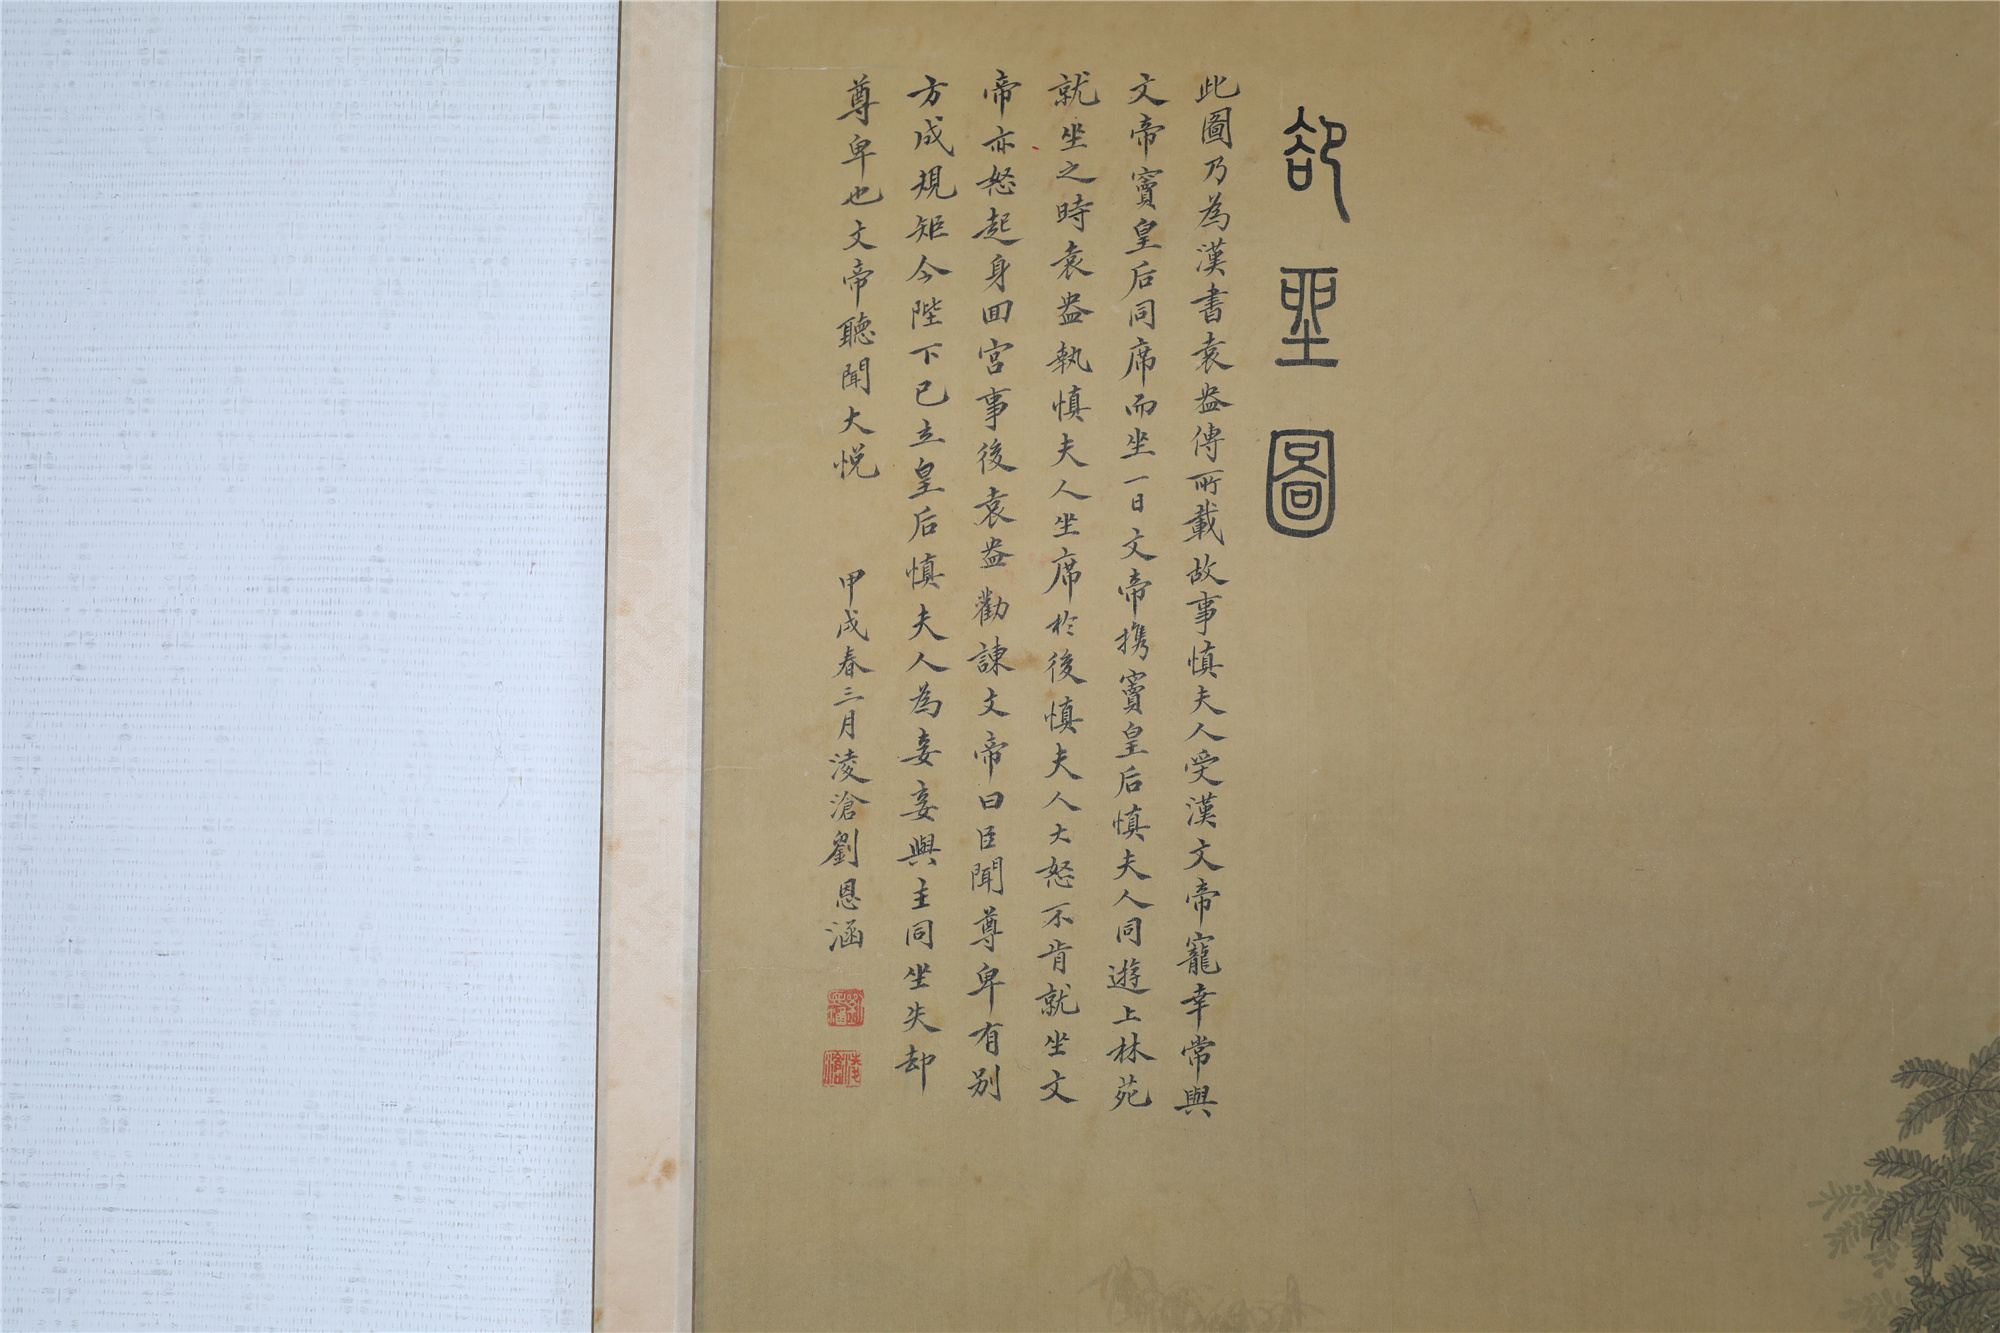 卻坐圖
此圖乃為漢書袁盎傳所載故事慎夫人受漢文帝寵幸常與
文帝竇皇后同席而坐一日文帝攜竇皇后慎夫人同遊上林苑
就坐之時袁盎執慎夫人坐席於後慎夫人大怒不肯就坐文
帝亦怒起身回宮事後袁盎勸諫文帝曰臣聞尊卑有别
方成規矩今陛下已立皇后慎夫人為妾妾與主同坐失却
尊卑也文帝聽聞大悅
甲戌春三月淩滄劉恩涵